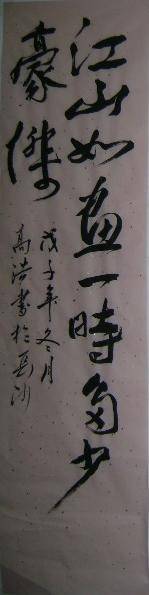 江山如画一時多少
豪傑
戊子年冬月
高浩書於長沙